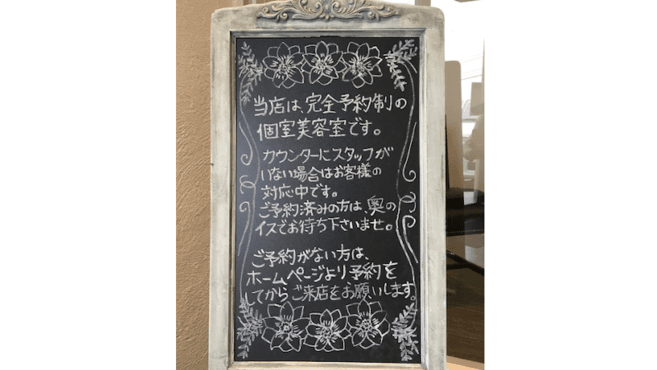 当店は、完全予約制の
個室美容室です。
カウンターにスタッフが
いない場合はお客様の
対応中です。
ご予約済みの方は、奥の
イスでお待ち下さいませ。
ご予約がない方は、
ホームページより予約を
してからご来店をお願いします。